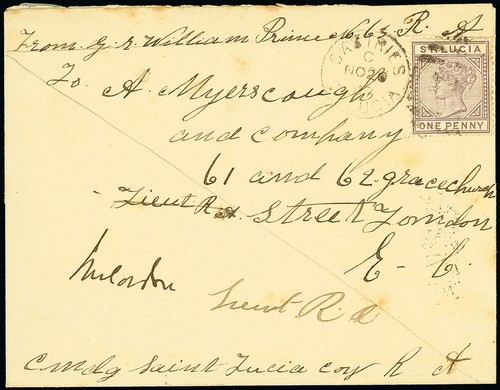 From G. r. William Prime No 663 R. A
To A. Myerscough
and Company
61 and 62 gracechurch
Street London
E - C.
Lieut R A
Lieut R A
Cmdg Saint Lucia coy R A
CASTRIES
C
NO 26
LUCIA
ST. LUCIA
ONE PENNY